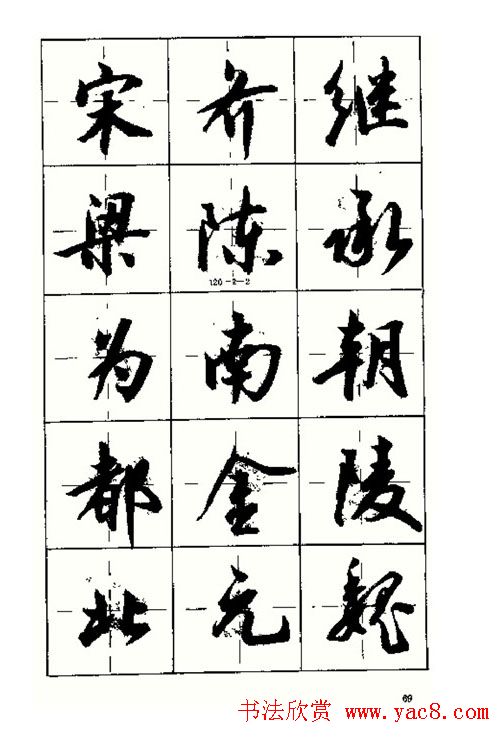 宋齐继
梁陈承
120-2-2
为南朝
都金陵
北元魏
69
书法欣赏 www.yac8.com